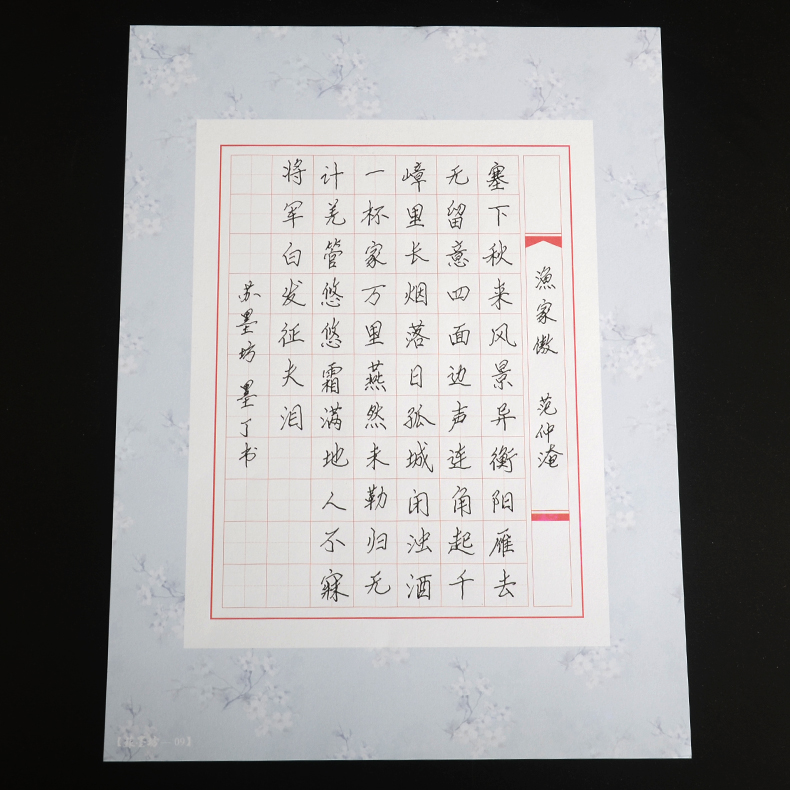 渔家傲 范仲淹
塞下秋来风景异衡阳雁去
无留意四面边声连角起千
嶂里长烟落日孤城闭浊酒
一杯家万里燕然未勒归无
计羌管悠悠霜满地人不寐
将军白发征夫泪
苏墨坊 墨丁书